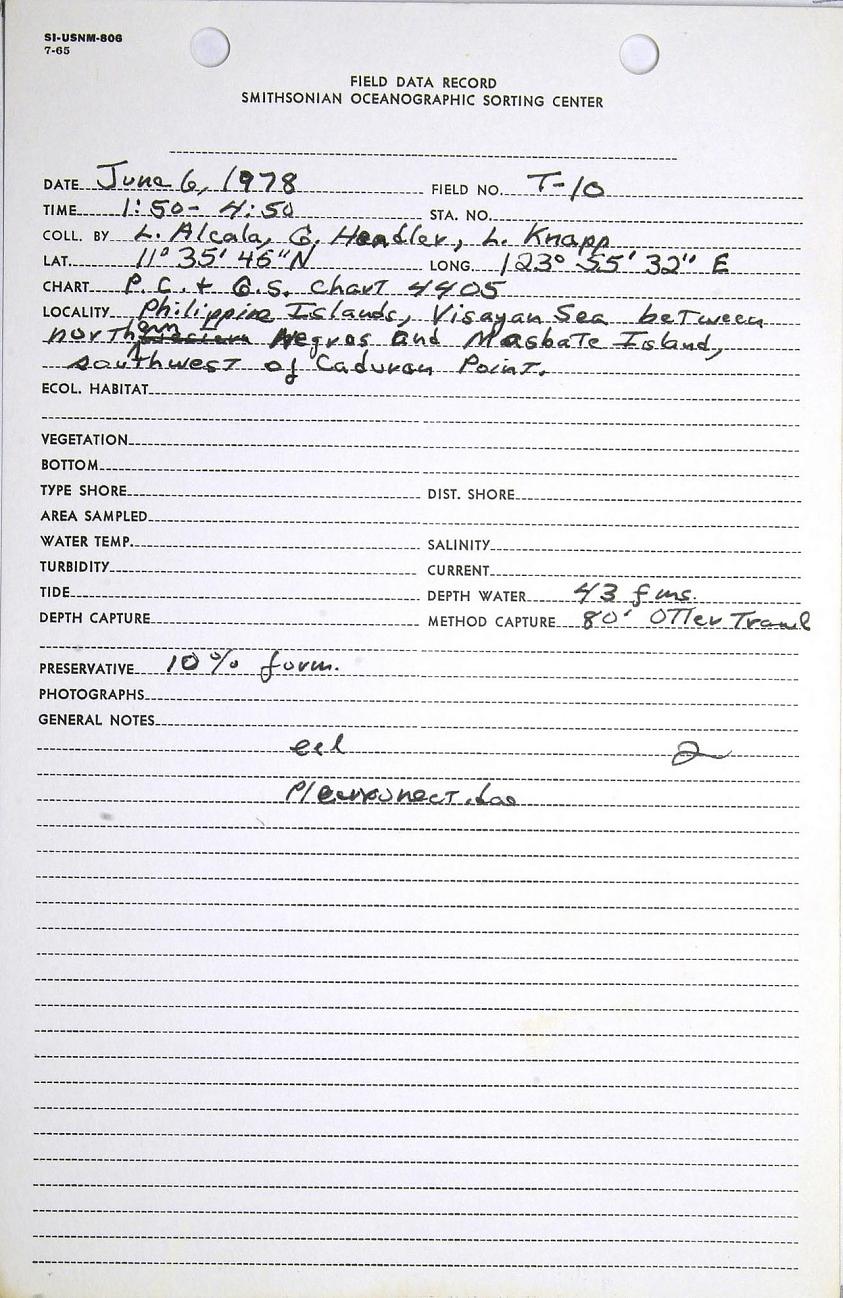 SI-USNM-806
7-65
FIELD DATA RECORD
SMITHSONIAN OCEANOGRAPHIC SORTING CENTER
DATE June 6, 1978 FIELD NO. T-10
TIME 1:50- 4:50 STA. NO.
COLL. BY L. Alcala, G. Hendler, L. Knapp
LAT. 11° 35' 46" N LONG. 123° 55' 32" E
CHART P. C. & G. S. Chart 4405
LOCALITY Philippine Islands, Visayan Sea between
northern Negros and Masbate Island,
southwest of Caduran Point.
ECOL. HABITAT
VEGETATION
BOTTOM
TYPE SHORE DIST. SHORE
AREA SAMPLED
WATER TEMP. SALINITY
TURBIDITY CURRENT
TIDE DEPTH WATER 43 fms.
DEPTH CAPTURE METHOD CAPTURE 80' Otter Trawl
PRESERVATIVE 10% form.
PHOTOGRAPHS
GENERAL NOTES
eel 2
Pleuronectidae